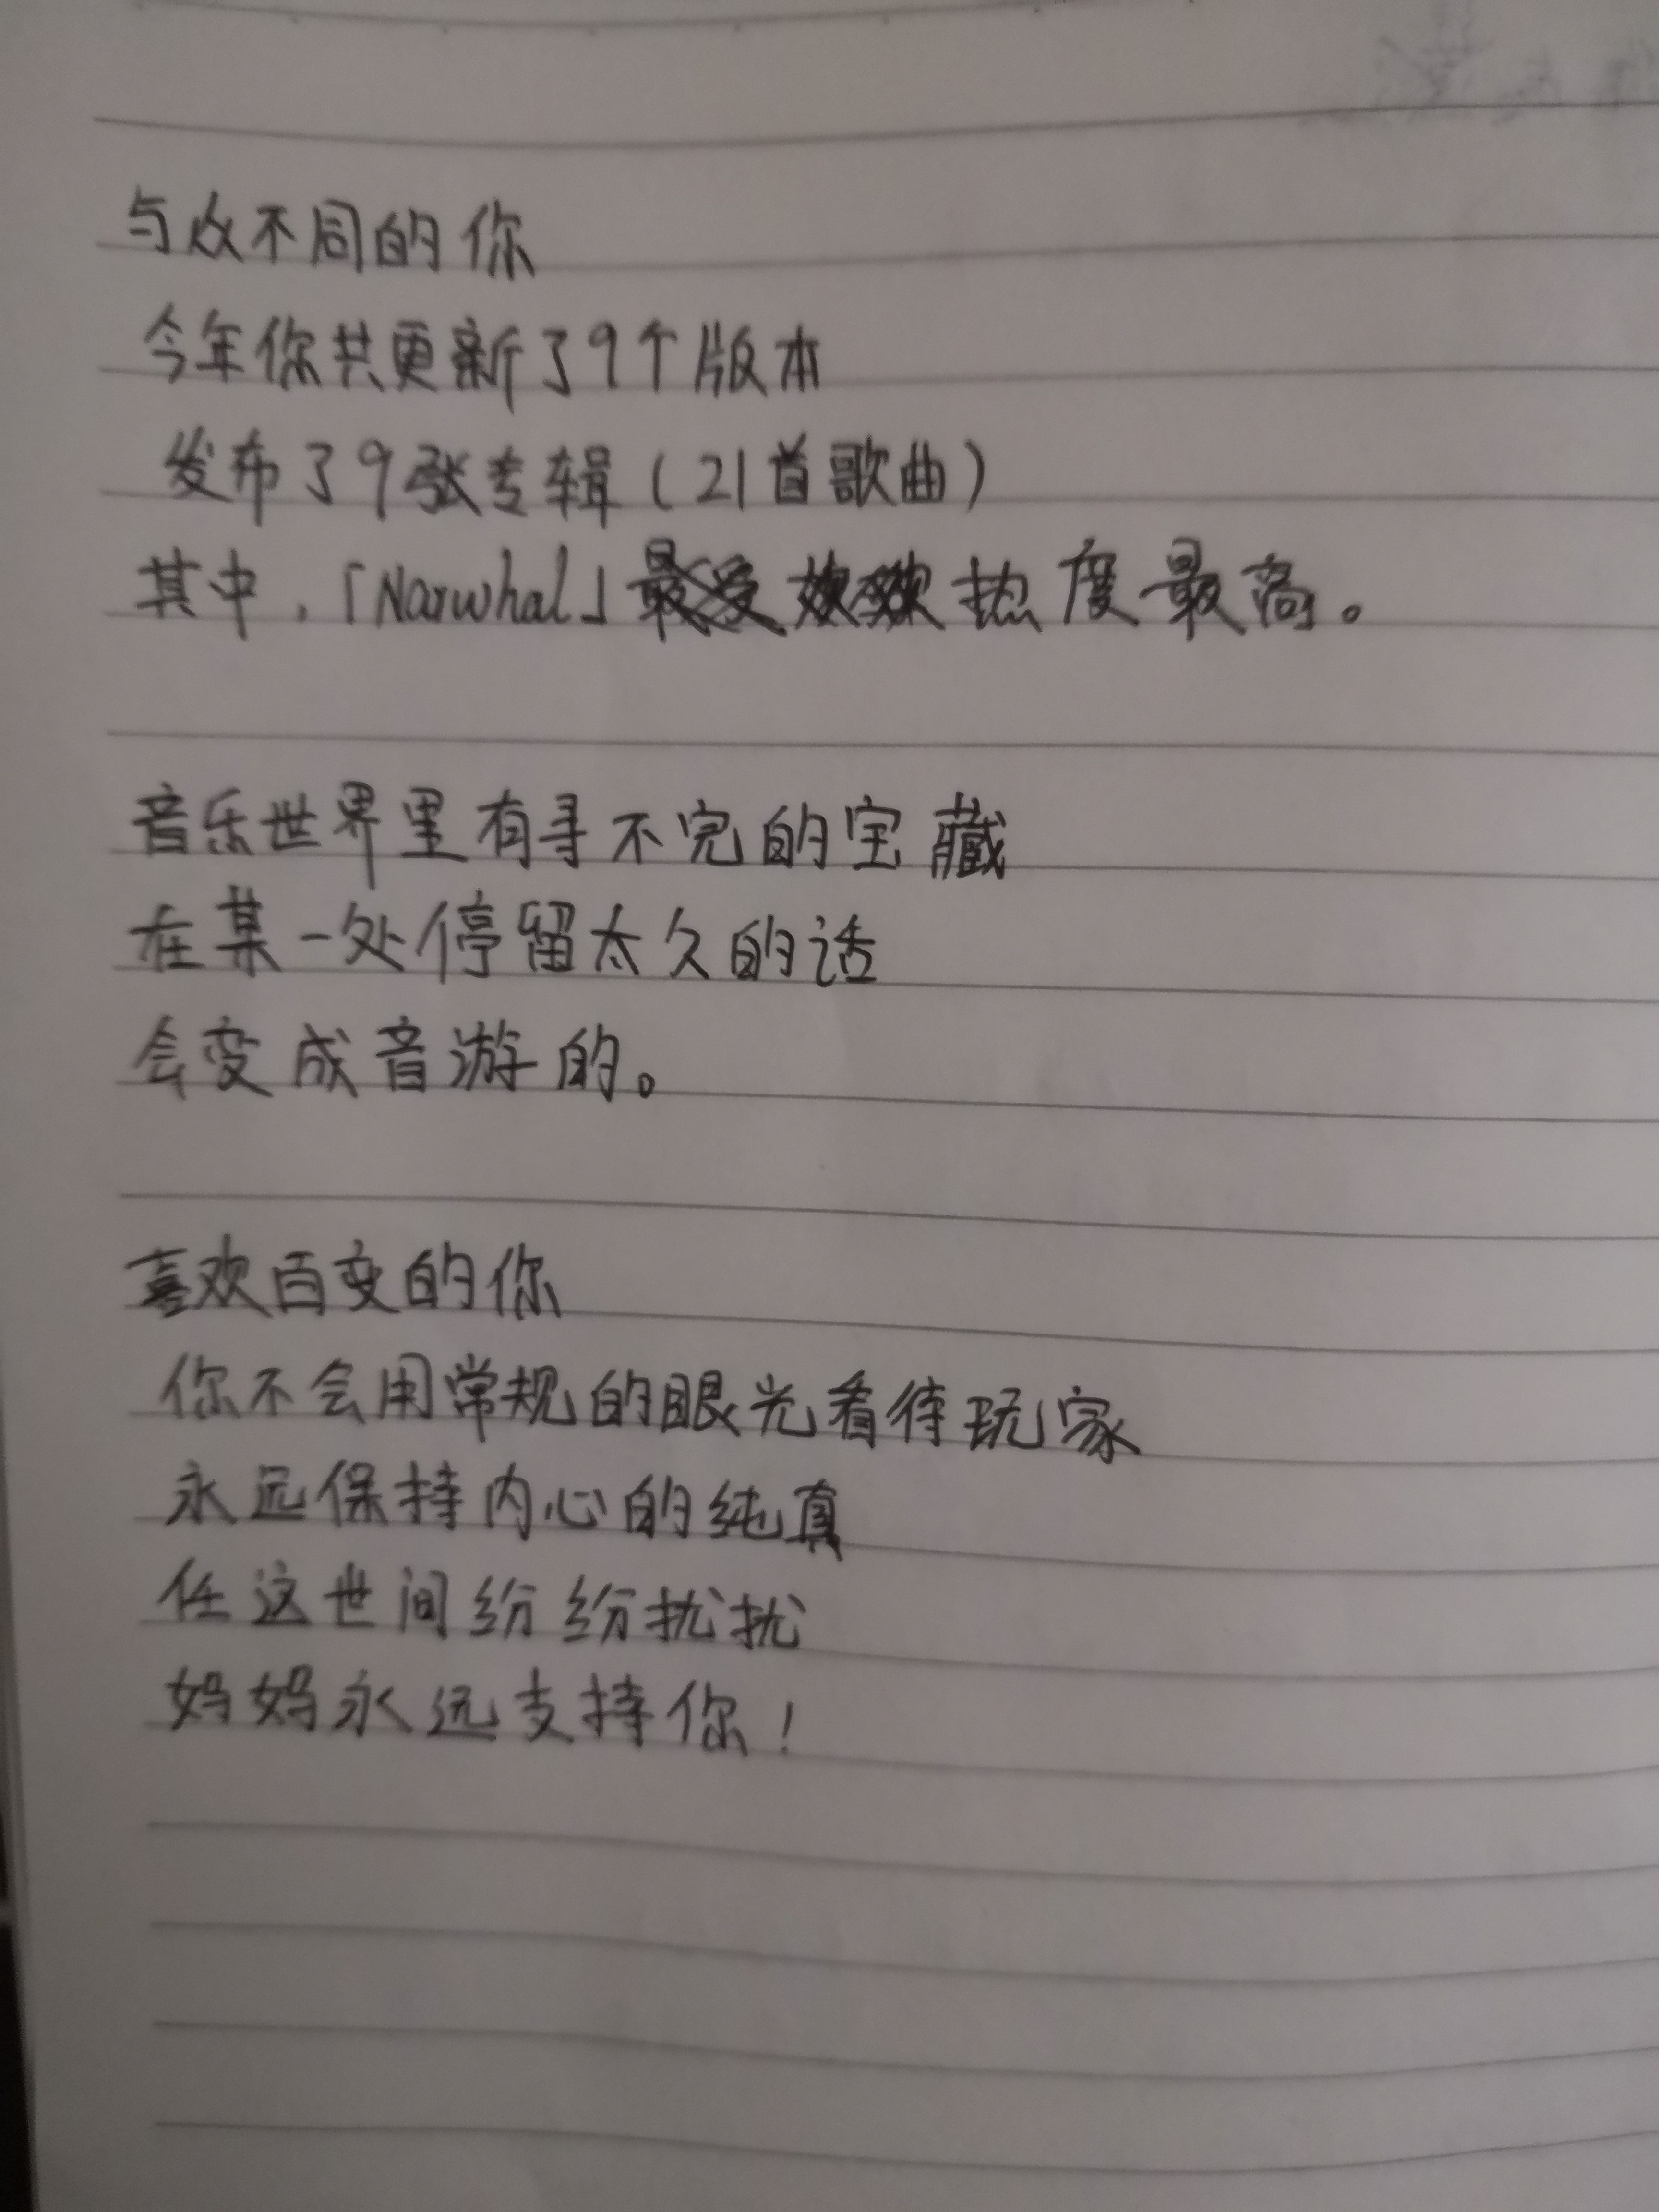 与众不同的你
今年你共更新了9个版本
发布了9张专辑(21首歌曲)
其中,「Narwhal」热度最高。
音乐世界里有寻不完的宝藏
在某一处停留太久的话
会变成音游的。
喜欢百变的你
你不会用常规的眼光看待玩家
永远保持内心的纯真
任这世间纷纷扰扰
妈妈永远支持你!